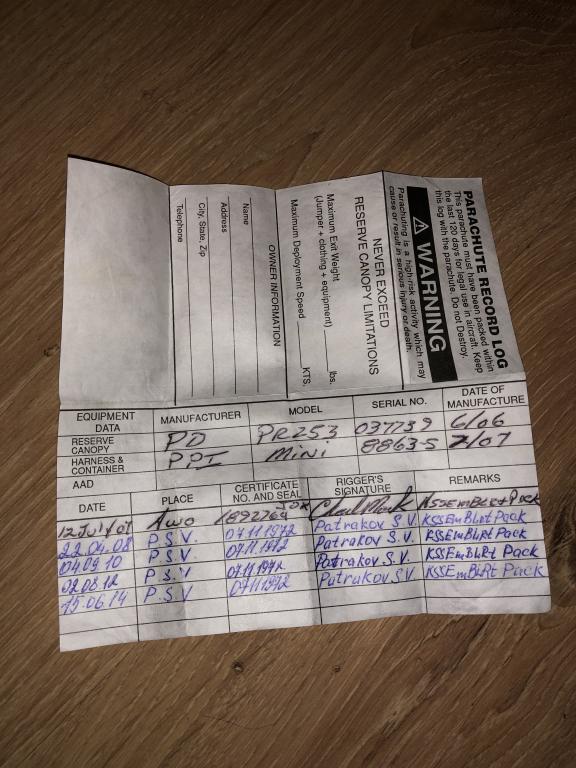 PARACHUTE RECORD LOG
This parachute must have been packed within
the last 120 days for legal use in aircraft. Keep
this log with the parachute. Do not Destroy.
WARNING
Parachuting is a high-risk activity which may
cause or result in serious injury or death.
NEVER EXCEED
RESERVE CANOPY LIMITATIONS
Maximum Exit Weight
(Jumper + clothing + equipment) lbs.
Maximum Deployment Speed KTS.
OWNER INFORMATION
Name
Address
City, State, Zip
Telephone
EQUIPMENT DATA MANUFACTURER MODEL SERIAL NO. DATE OF MANUFACTURE
RESERVE CANOPY PD PR253 037739 6/06
HARNESS & CONTAINER PPI Mini 8863-5 2/07
AAD
DATE PLACE CERTIFICATE NO. AND SEAL RIGGER'S SIGNATURE REMARKS
12 Jul 07 1892764
22.04.08 P.S.V. 07.11.1972 Patrakov S.V. KSSEmBLRt Pack
04.09.10 P.S.V. 07.11.1972 Patrakov S.V. KSSEmBLRt Pack
02.08.12 P.S.V 07.11.1972 Patrakov S.V. KSSEmBLRt Pack
15.06.14 P.S.V 07.11.1972 Patrakov S.V KSSEmBLRt Pack